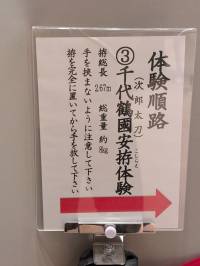 体験順路
(次郎太刀)
③千代鶴國安拵体験
こしらえ
拵総長 267cm 総重量 約8kg
手を挟まないように注意して下さい
拵を完全に置いてから手を放して下さい